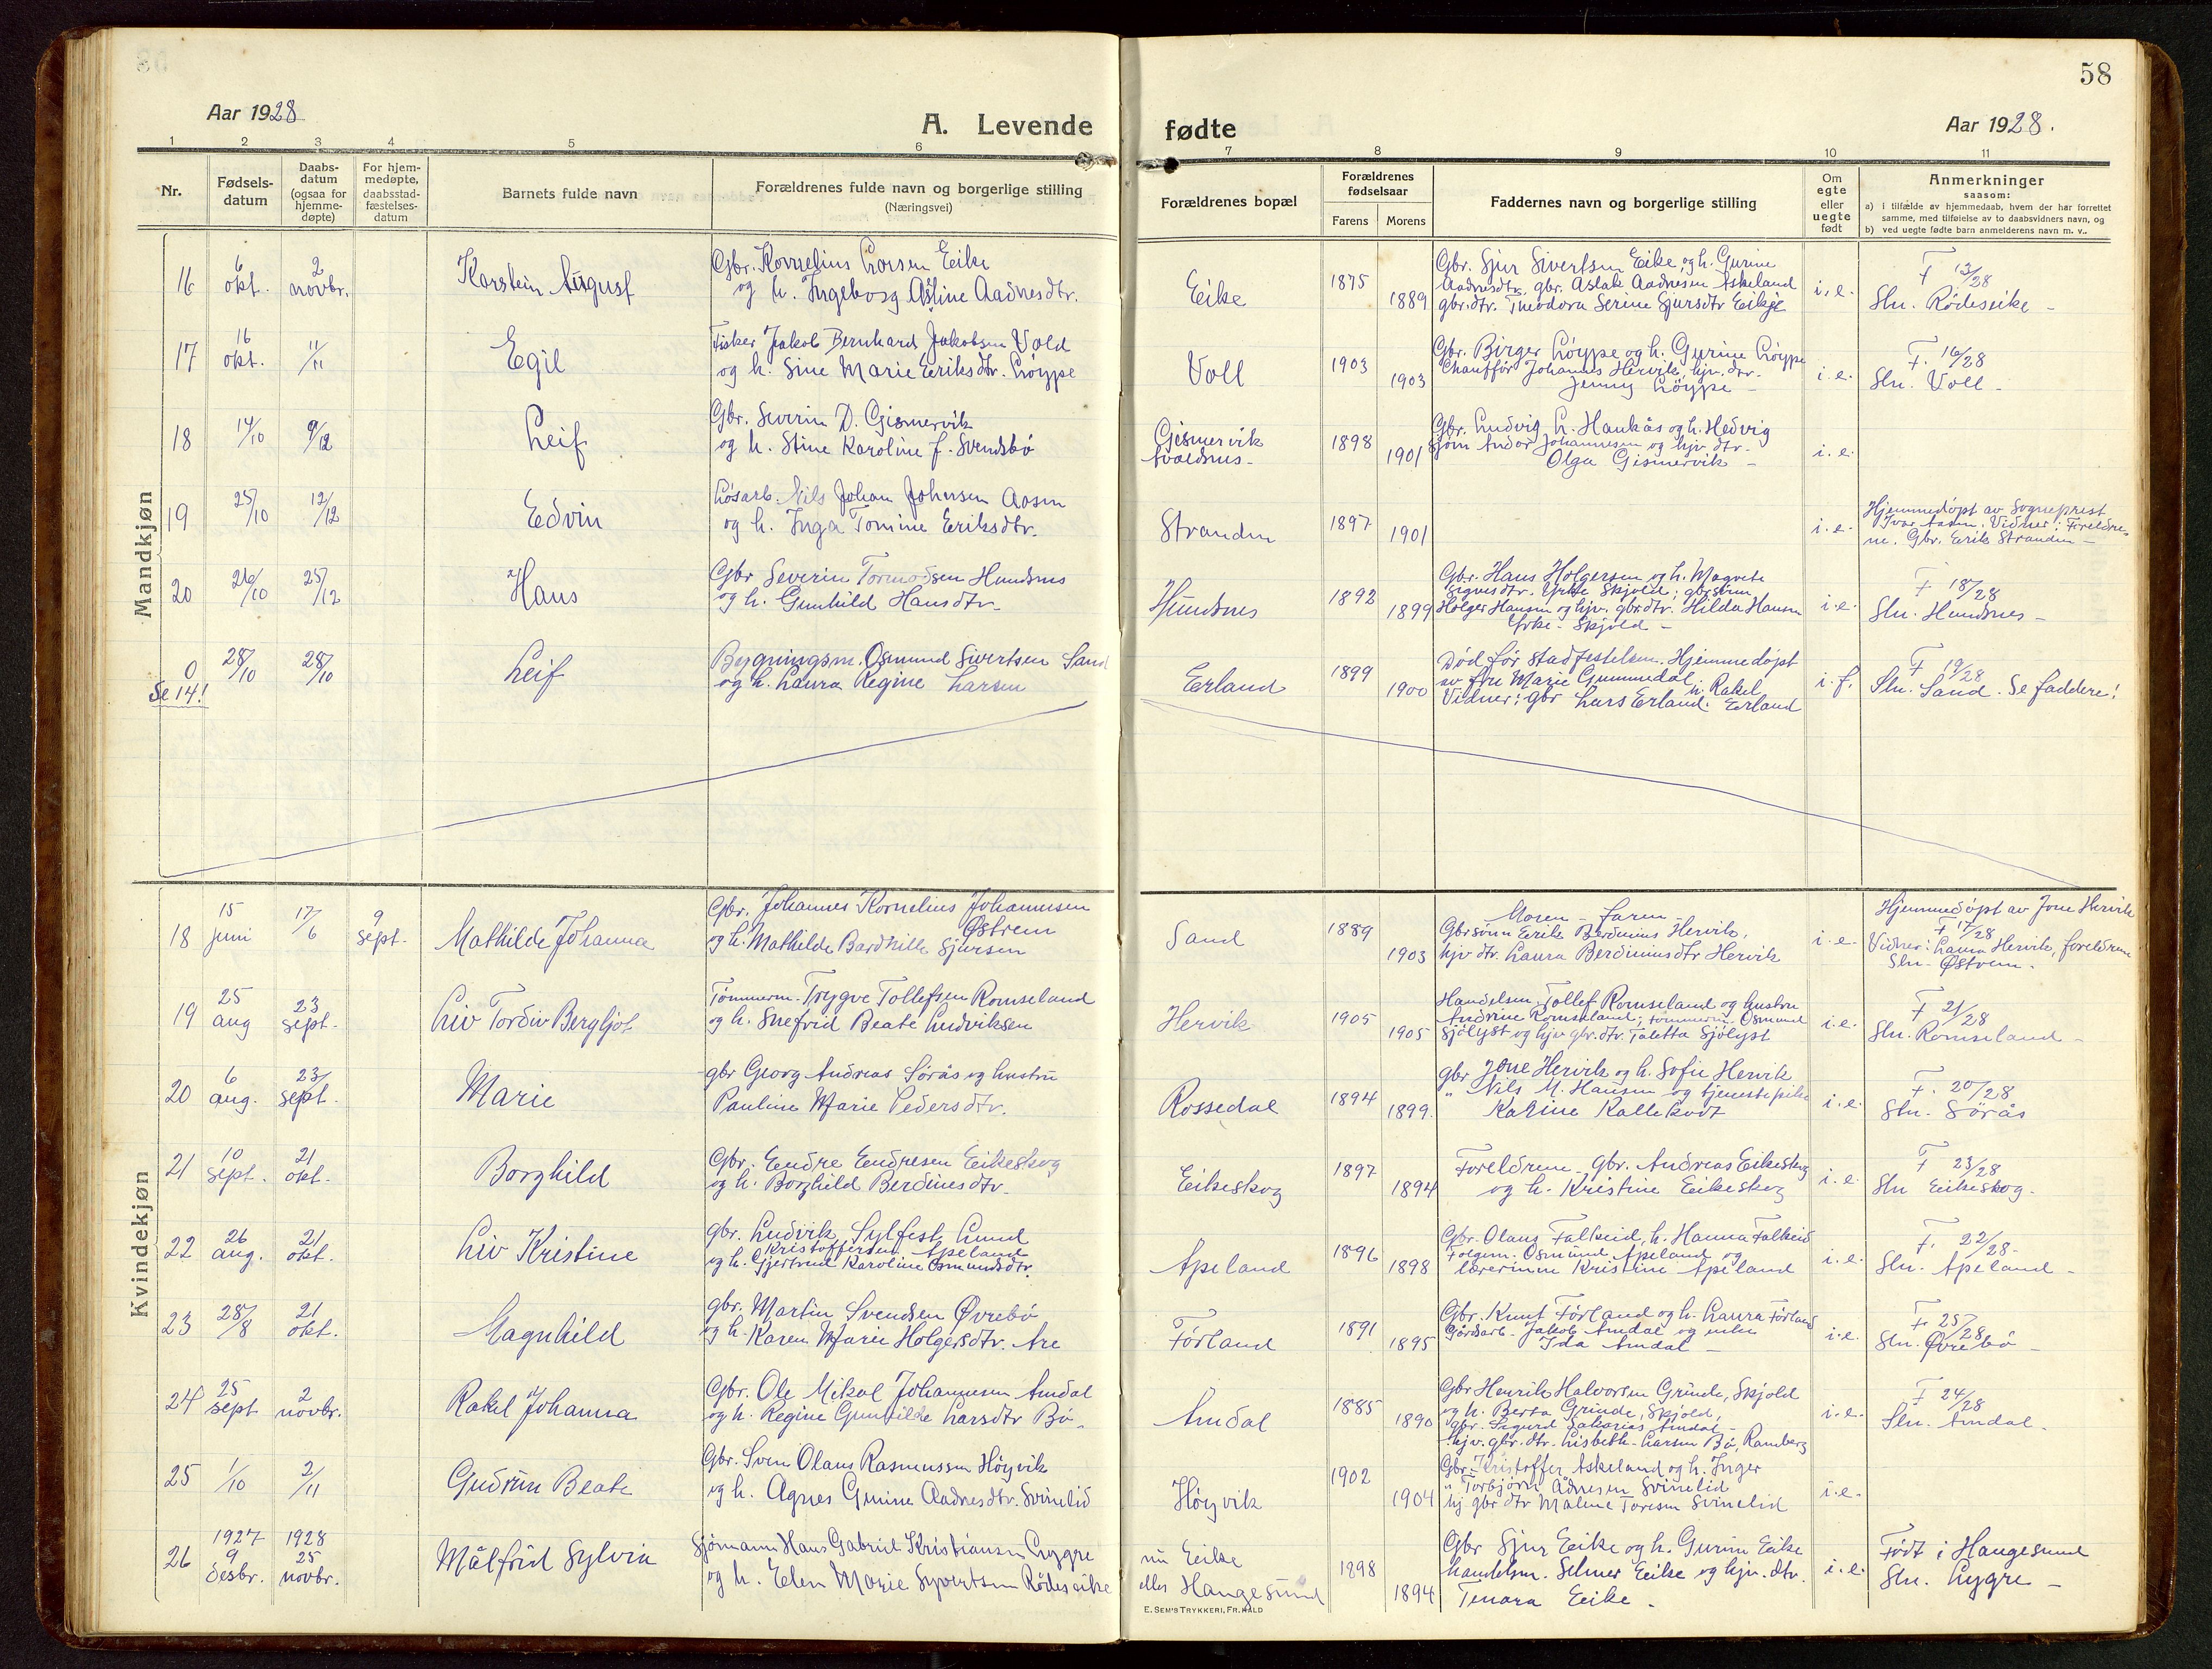 58
Aar 1928
A. Levende
fødte
Aar 1928.
1 2 3 4 5 6 7 8 9 10 11
Nr.
Fødsels-
datum
Daabs-
datum
(ogsaa for
hjemme-
døpte)
For hjem-
medøpte,
daabsstad-
fæstelses-
datum
Barnets fulde navn
Forældrenes fulde navn og borgerlige stilling
(Næringsvei)
Forældrenes bopæl
Forældrenes
fødselsaar
Farens Morens
Faddernes navn og borgerlige stilling
Om
egte
eller
uegte
født
Anmerkninger
saasom:
a) i tilfælde av hjemmedaab, hvem der har forrettet
samme, med tilføielse av to daabsvidners navn, og
b) ved uegte fødte barn anmelderens navn m. v..
Mandkjøn
16 6 okt. 2 novbr. Karstein August
Gbr. Kornelius Larsen Eike
og h. Ingeborg Astine Aadnesdtr.
Eike 1875 1889
Gbr. Sjur Sivertsen Eike, og h. Gurine
Aadnesdtr, gbr. Aslak Aadnesen Askeland
gbr.dtr. Theodora Serine Sjursdtr Eikje
i. e.
F 13/28
Sln. Rødeseike -
17 16 okt. 11/11 Egil
Fisker Jakob Bernhard Jakobsen Vold
og h. Sine Marie Eriksdtr. Løype
Voll 1903 1903
Gbr. Birger Løype og h. Gurine Løype
Chauffør Johannes Hervik, hjv. dtr.
Jenny Løype -
i. e.
F. 16/28
Sln. Voll -
18 14/10 9/12 Leif
Gbr. Severin D. Gismervik
og h. Stine Karoline f. Svendsbø
Gjesmervik
Avaldsnes - 1898 1901
Gbr. Ludvig L. Haukås og h. Hedvig
sjøm Andor Johannesen og hjv dtr.
Olga Gismervik -
i. e.
19 25/10 12/12 Edvin
Løsarb. Nils Johan Johnsen Aasen
og h. Inga Tomine Eriksdtr.
Stranden 1897 1901
i. e.
Hjemmedøpt av Sogneprest
Ivar Aasen. Vidner: Foreldre-
ne. Gbr. Erik Stranden -
20 26/10 25/12 Hans
Gbr Severin Tormodsen Hundsnes
og h. Gunhild Hansdtr.
Hundsnes 1892 1899
Gbr. Hans Holgersen og h. Magrete
Sigvesdtr. Yrke Skjold; gbrsønn
Holger Hansen og hjv. gbr.dtr. Hilda Hansen
Yrke - Skjold -
i. e.
F 18/28
Sln. Hundsnes -
0
Se 14!
28/10 28/10 Leif
Bygningsm. Osmund Sivertsen Sand
og h. Laura Regine Larsen
Erland 1899 1900
Død før stadfestelsen. Hjemmedøpt
av fru Marie Gummedal,
Vidner: gbr Lars Erland. h. Rakel Erland
i. f.
F 19/28
Sln. Sand. Se faddere!
Kvindekjøn
18 15 juni 17/6 9 sept. Mathilde Johanna
Gbr. Johannes Kornelius Johannesen
Østrem
og h. Mathilde Bardhille Sjursen
Sand 1889 1903
Moren - faren -
Gbrsønn Erik Berdinius Hervik,
hjv dtr. Laura Berdiniusdtr Hervik
i. e.
Hjemmedøpt av Jone Hervik
F 17/28
Vidner: Laura Hervik, foreldrene
Sln. Østrem.
19 25 aug 23 sept. Liv Tordiv Bergljot
Tømmerm. Trygve Tollefsen Romseland
og h. Snefrid Beate Ludviksen
Hervik 1905 1905
Handelsm. Tollef Romseland og hustru
Andrine Romseland; tømmerm. Osmund
Sjølyst og hjv gbr.dtr. Taletta Sjølyst
i. e.
F 21/28
Sln. Romseland -
20 6 aug. 23/ sept. Marie
gbr Georg Andreas Sørås og hustru
Pauline Marie Pedersdtr.
Rossedal 1894 1899.
gbr Jone Hervik og h. Sofie Hervik
" Nils M. Hansen og tjenestepike
Karine Kallekodt
i. e.
F. 20/28
Sln. Sørås
21 10 sept. 21 okt. Borghild
Gbr. Endre Endresen Eikeskog
og h. Borghild Berdinesdtr.
Eikeskog 1897 1894
Foreldrene - gbr. Andreas Eikeskog
og h. Kristine Eikeskog
i. e.
F 23/28
Sln Eikeskog.
22 26 aug. 21 okt. Liv Kristine
gbr. Ludvik Sylfest Lund
Kristoffersen Apeland
og h. Gjertrud Karoline Osmundsdtr.
Apeland 1896 1898
Gbr. Olaus Falkeid, h. Hanna Falkeid
Folgem. Osmund Apeland og
lærerinne Kristine Apeland
i. e.
F. 22/28
Sln. Apeland -
23 28/8 21 okt. Magnhild
gbr. Martin Svendsen Øvrebø
og h. Karen Marie Holgersdtr. Are
Førland 1891 1895
Gbr. Knut Førland og h. Laura Førland
Gårdsarb. Jakob Amdal og enke
Ida Amdal -
i. e.
F. 25/28
Sln. Øvrebø -
24 25 sept 2 novbr. Rakel Johanna
Gbr. Ole Mikal Johannesen Amdal
og h. Regine Gunhilde Larsdtr Bø -
Amdal 1885 1890
Gbr Henrik Halvorsen Grinde, Skjold
og h. Berta Grinde, Skjold,
gbr. Sigurd Sakarias Amdal -
hjv. gbr. dtr. Lisbeth Larsen Bø, Ramberg
i. e.
F 24/28
Sln. Amdal -
25 1/10 2/11 Gudrun Beate
Gbr. Sven Olaus Rasmussen Høyvik
og h. Agnes Gurine Aadnesdtr. Svinelid
Høyvik 1902 1904
Gbr. Kristoffer Askeland og h. Inger
" Torbjørn Ådnesen Svinelid
hj. gbr dtr Malene Toresen Svinelid
i. e.
26 1927 9 desbr. 1928 25 novbr. Målfrid Sylvia
Sjømann Hans Gabriel Kristiansen Lygre
og h. Elen Marie Syvertsen Rødeseike
nu Eike
elles Haugesund 1898 1894
Gbr Sjur Eike og h. Gurine Eike
handelsm. Selmer Eike og hjv. dtr.
Tenora Eike.
i. e.
Født i Haugesund
Sln. Lygre -
E. SEM'S TRYKKERI, FR.HALD